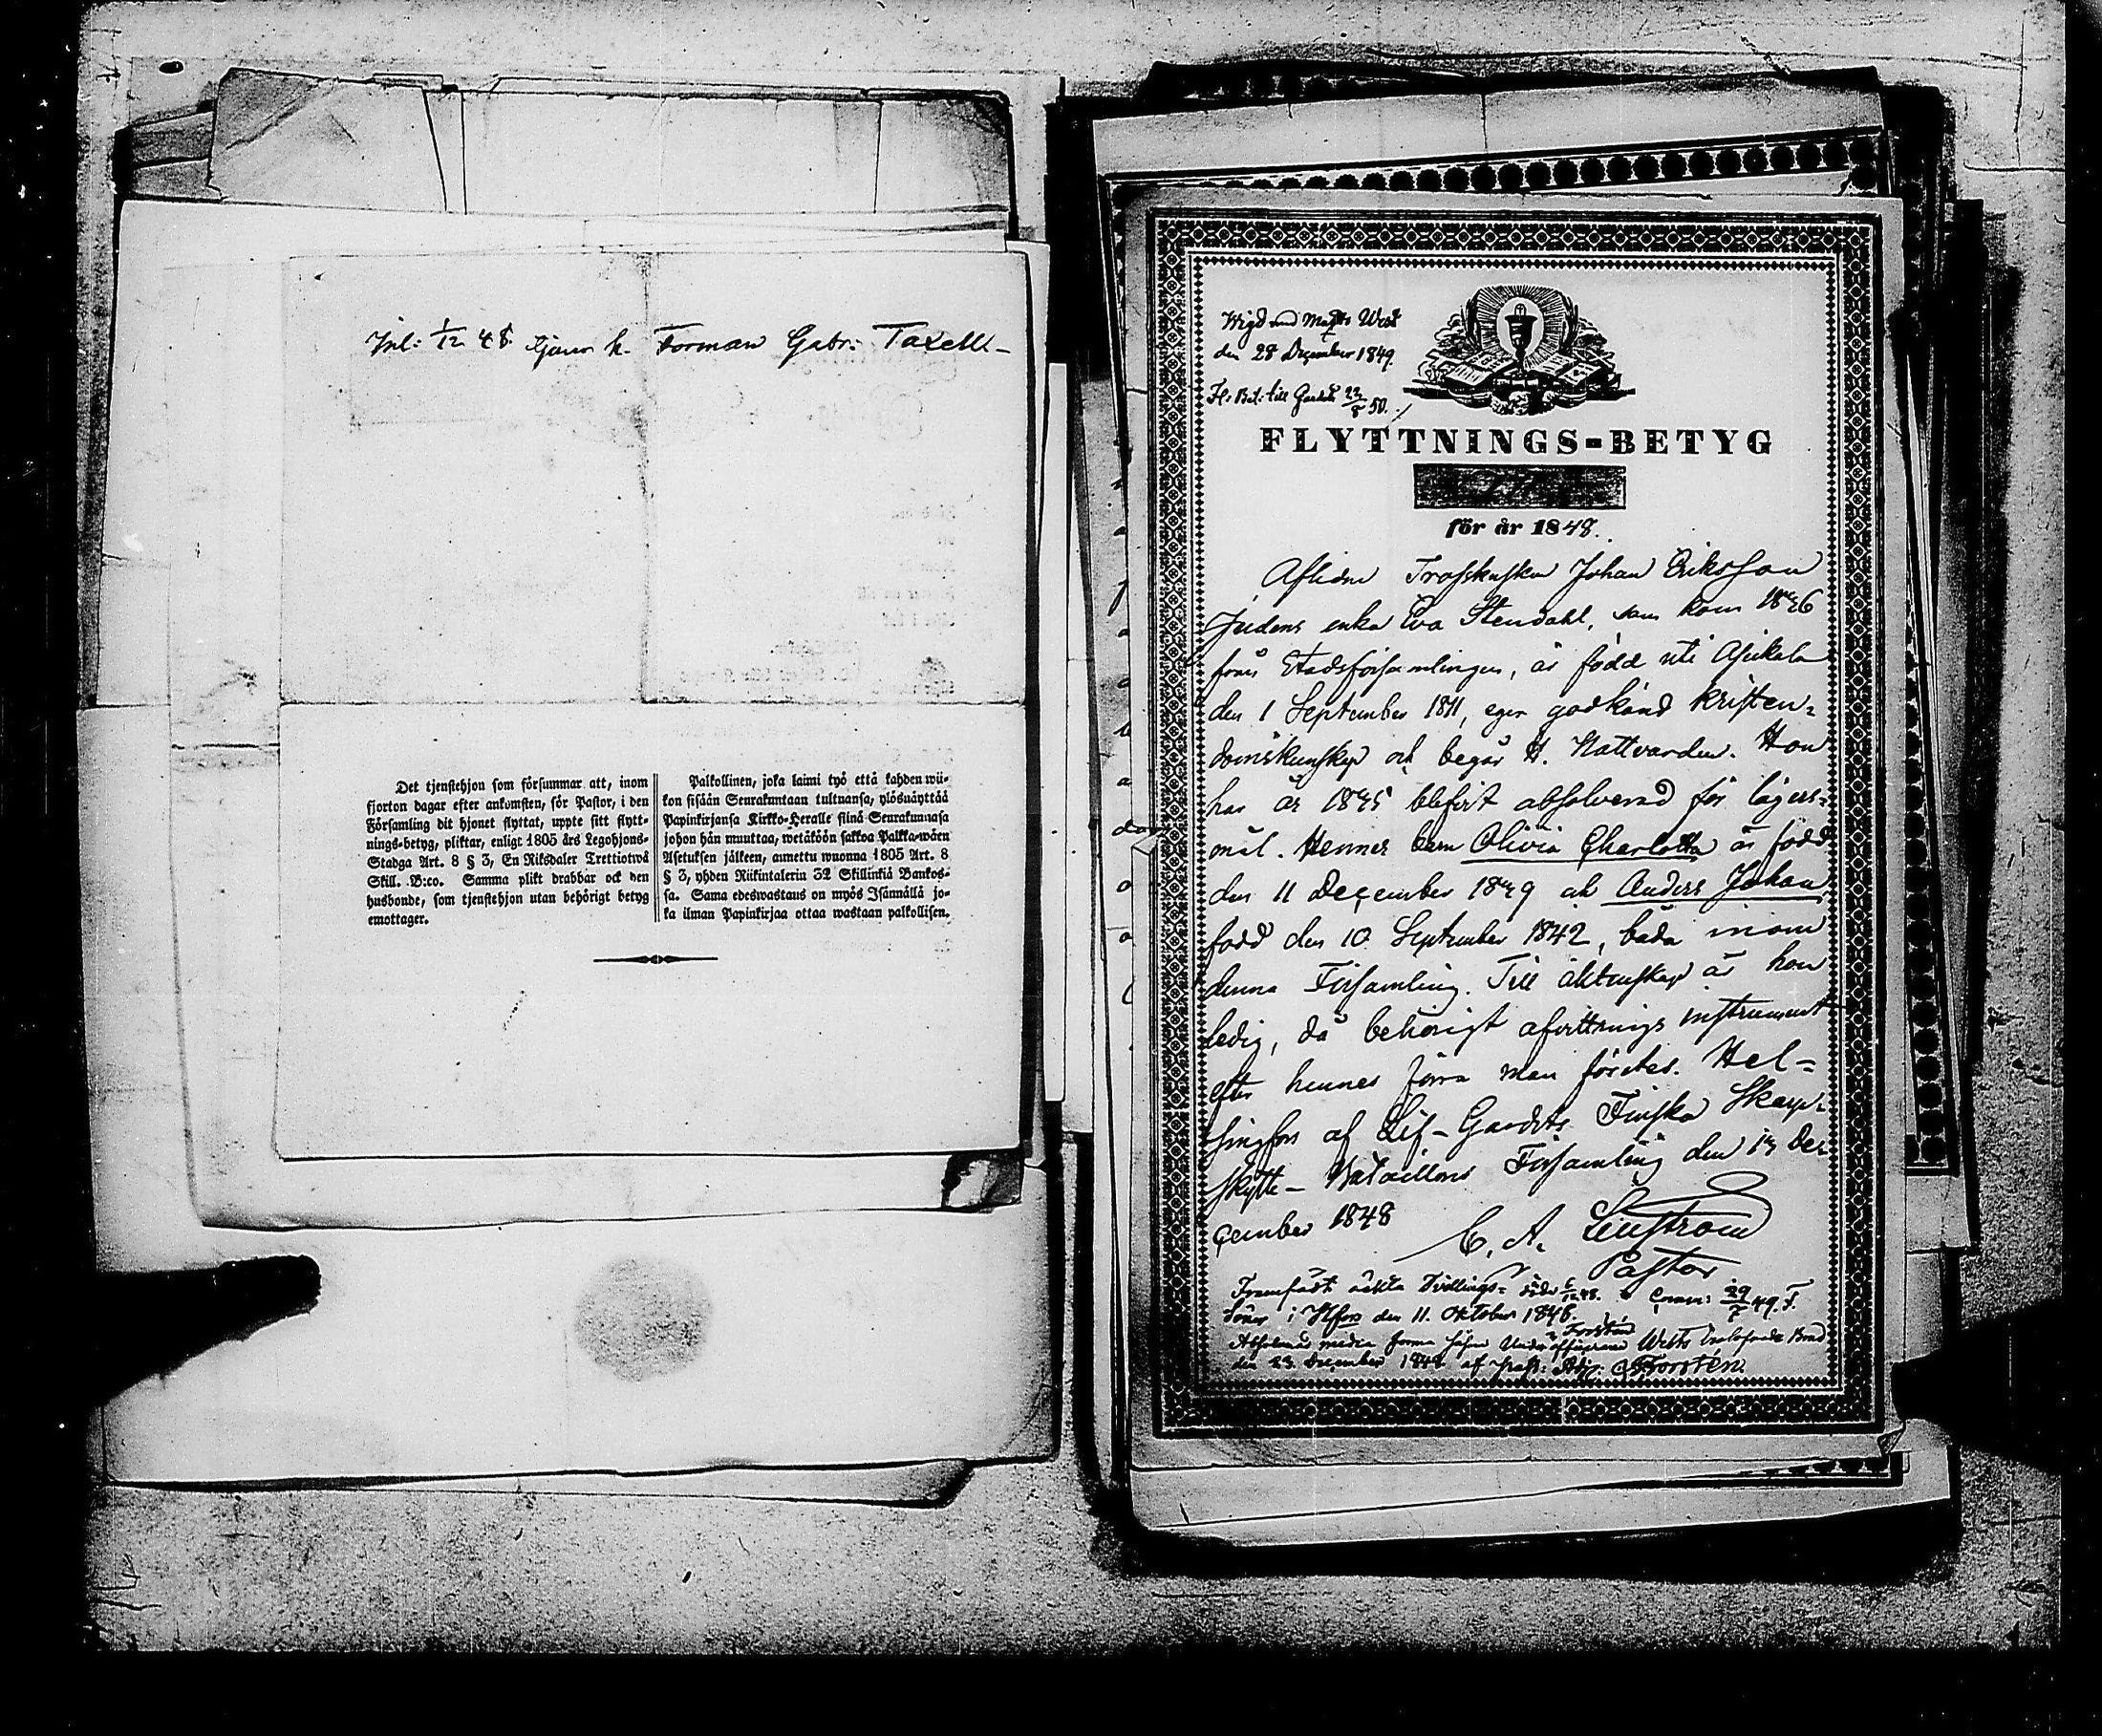 Inl: 1/12 48. tjenar h. Forman Gabr: Taxell
Det tjenstehjon som försummar att, inom
fjorton dagar efter ankomsten, för Pastor, i den
Församling dit hjonet flyttat, uppte sitt flytt-
nings-betyg, pliktar, enligt 1805 års Legohjons-
Stadga Art. 8 § 3, En Riksdaler Trettiotwå
Skill. B:co. Samma plikt drabbar ock den
husbonde, som tjenstehjon utan behörigt betyg
emottager.
Palkollinen, joka laimi lyö että kahden wii-
kon sisään Seurakuntaan tultuansa, ylösnäyttää
Papinkirjansa Kirkko-Heralle siinä Seurakunnasa
johon hän muuttaa, wetäköön sakkoa Palkka-wäen
Asetuksen jälkeen, annettu wuonna 1805 Art. 8
§ 3, yhden Riikintalerin 32 Skillinkiä Bankos-
sa. Sama edeswastaus on myös Isännällä jo-
ka ilman Papinkirjaa ottaa wastaan palkollisen.
Wigd med West
den 28 December 1849.
Fl: Bet: till 22/8 50.
FLYTTNINGS-BETYG
för år 1848.
Aflidne Trosskusken Johan Eriksson
Judens enka Eva Stendahl, som kom 1836
från Stadsförsamlingen, är född uti Asikala
den 1 September 1811, eger godkänd kristen-
domskunskap och begår H. Nattvarden. Hon
har år 1835 blifvit absolverad för lägers-
mål. Hennes barn Olivia Charlotta är född
den 11 December 1839 och Anders Johan
född den 10 September 1842, båda inom
denna Församling. Till äktenskap är hon
ledig, då behörigt afvittrings instrument
efter hennes förra man företes. Hel-
singfors af Lif-Gardets Finska Skarp-
skytte-Bataillons Församling den 13 De-
cember 1848
C. A.
Pastor
Framfödt äckta Tvillings-
Söner i Hfors den 11. Oktober 1848.
29/7 49. F.
den 23 December 184 af Adj: Forstén.